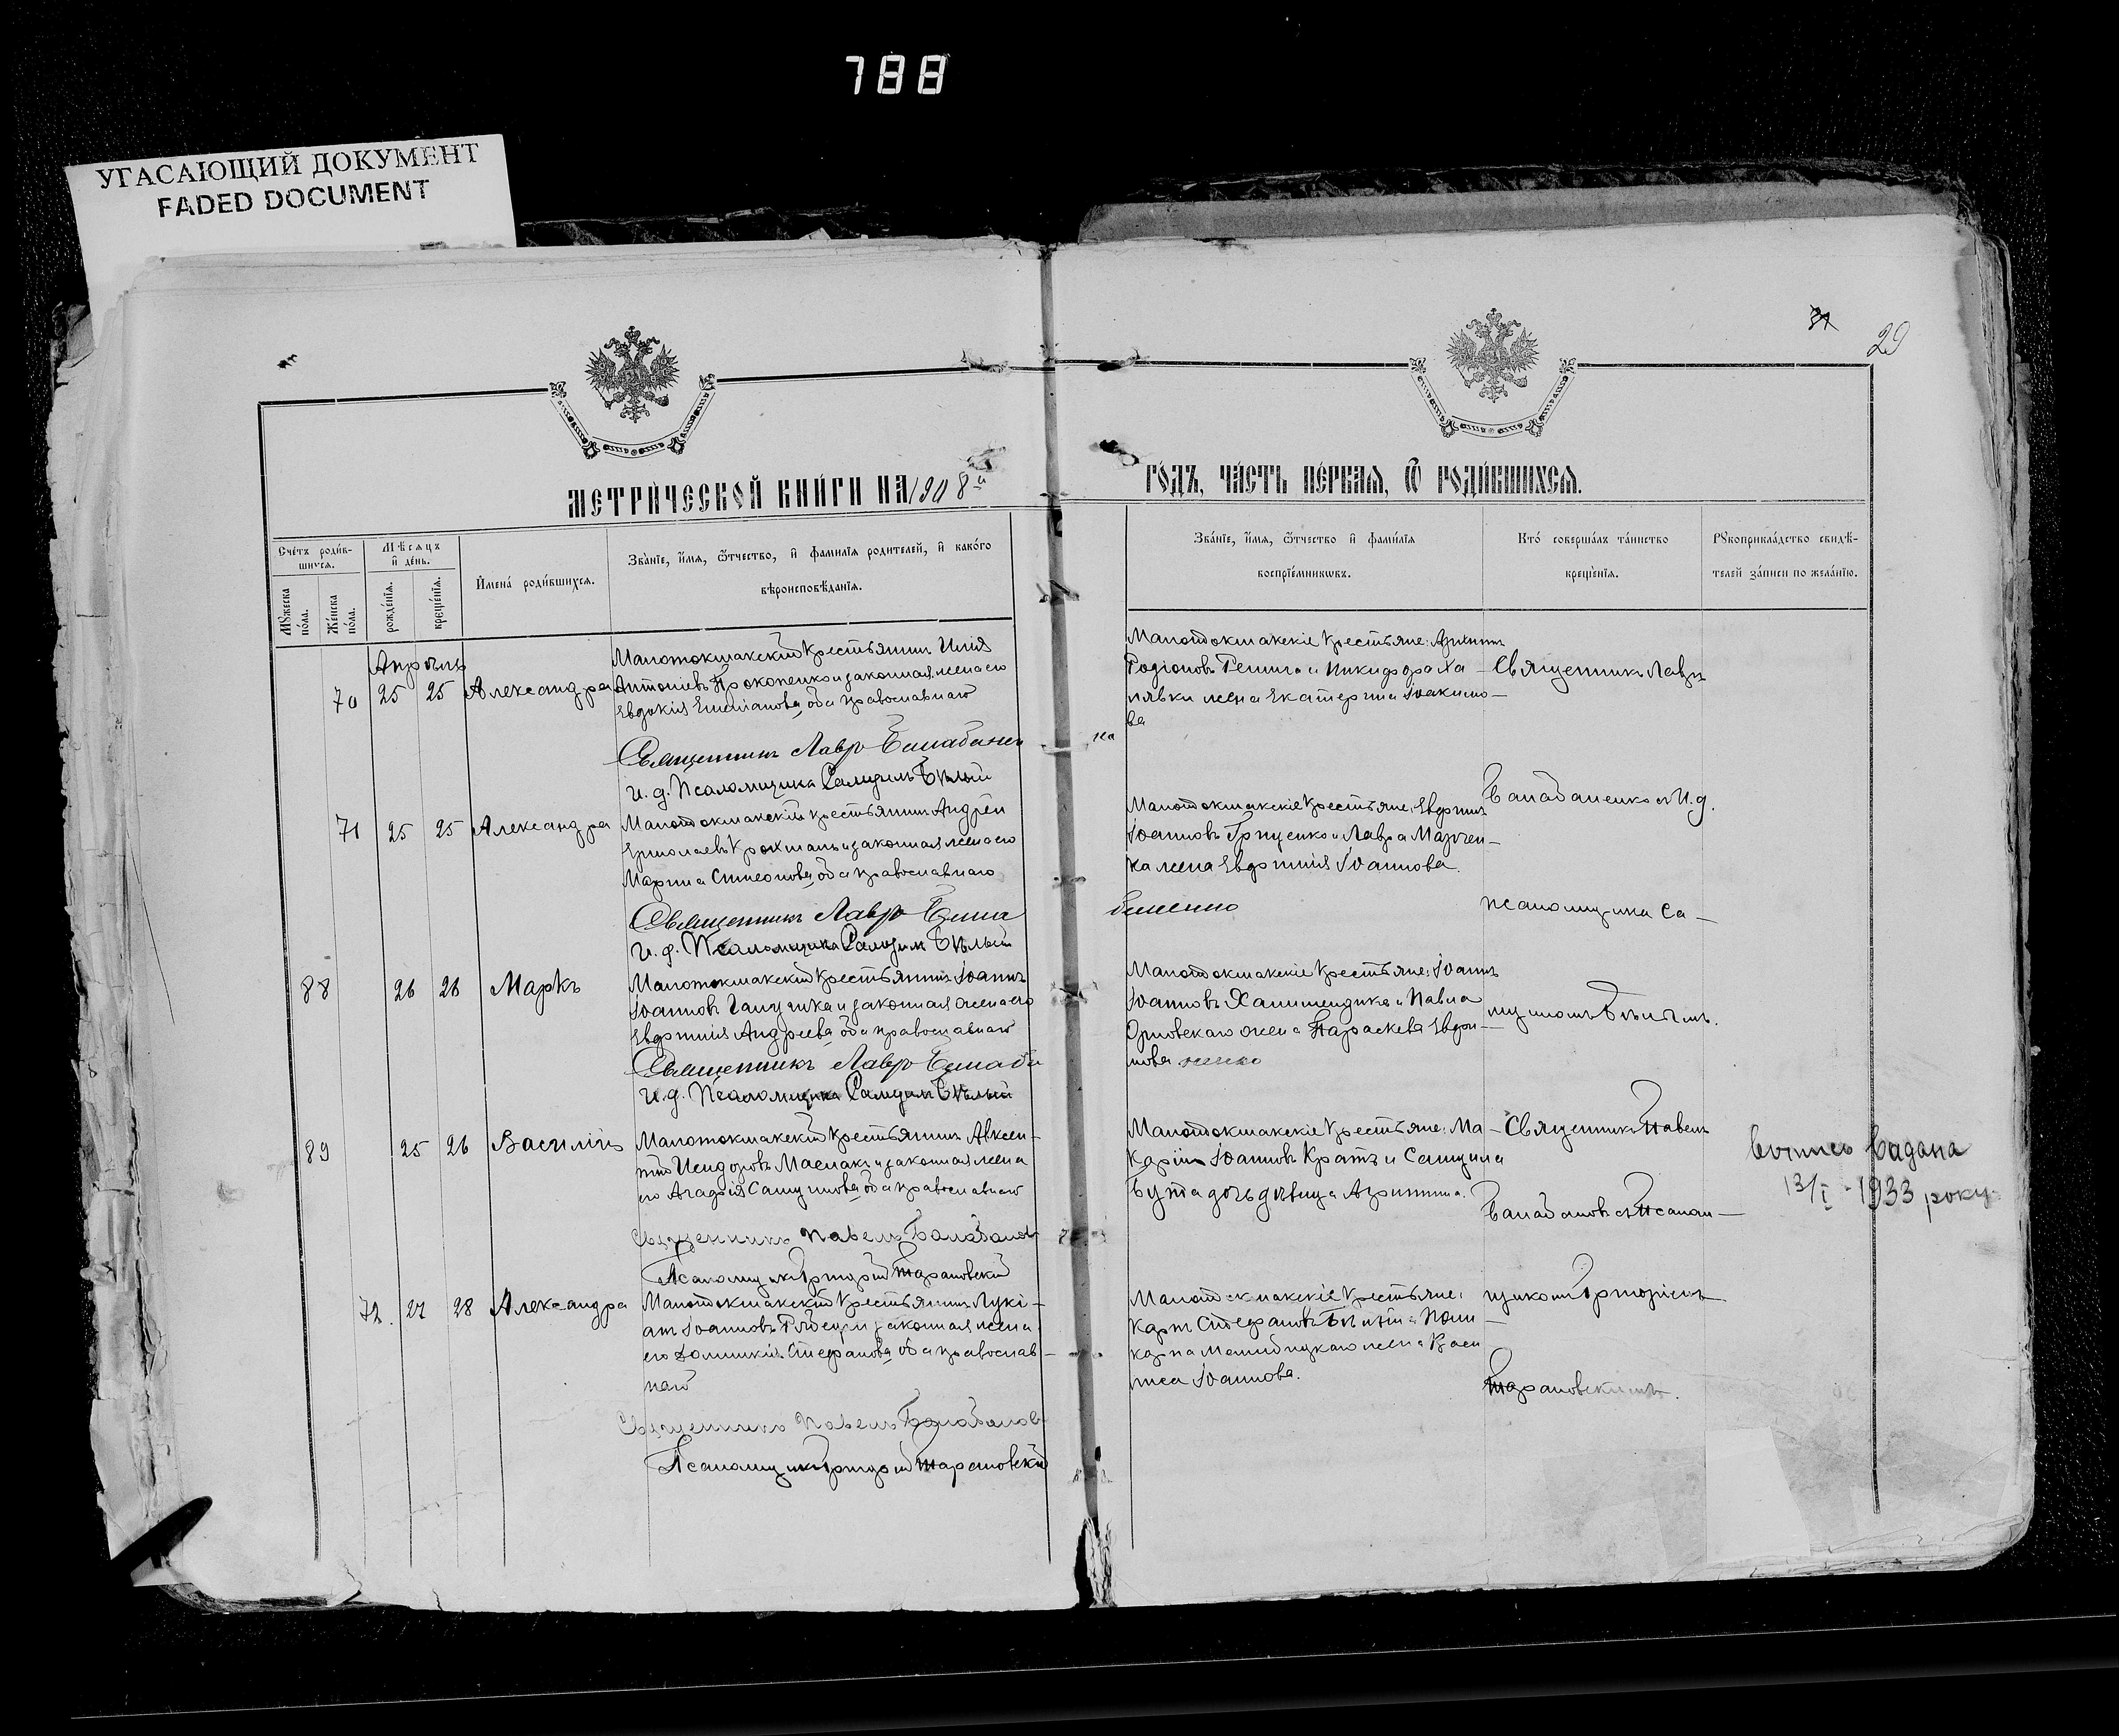 788
УГАСАЮЩИЙ ДОКУМЕНТ
FADED DOCUMENT
29
МЕТРИЧЕСКОЙ КНИГИ НА 1908й
ГОДЪ, ЧАСТЬ ПЕРВАЯ, Ѿ РОДИВШИХСЯ.
Счетъ родившихся.
Мѣсяцъ и день.
Мꙋжеска пола.
Женска пола.
рожденїя.
крещенїя.
Имена родившихся.
Званїе, имя, ѿчество, и фамилїя родителей, и какого
вѣроисповѣданїя.
Званїе, имя, ѿчество и фамилїя
воспрїемникωвъ.
Кто совершалъ таинство
крещенїя.
Рꙋкоприкладство свидѣ-
телей записи по желанїю.
Апрѣль
70 25 25 Александра
Малотокмакскій крестьянинъ Илія
Антоніевъ Прокопенко и законная жена его
Евдокія Емиліанова, оба православнаго
Священникъ Лавръ Балабанен
и. д. Псаломщика Самуилъ Бѣлый
Малотокмакскіе крестьяне:
Родіоновъ и Никифора Ха-
пявки жена Екатерина Іоакимо-
ва
Священникъ Лавръ
71 25 25 Александра
Малотокмакскій крестьянинъ Андрей
Ермолаевъ Крохмаль и законная жена его
Марина Симеонова, оба православнаго
Священникъ Лавръ Бала
и. д. Псаломщика Самуилъ Бѣлый
Малотокмакскіе крестьяне: Евфимій
Іоанновъ Гриценко и Лавра Марчен-
ка жена Евфимія Іоаннова.
Балабаненко съ И. д.
псаломщика Са-
88 26 26 Маркъ
Малотокмакскій крестьянинъ Іоаннъ
Іоанновъ Галушка и законная жена его
Евфимія Андреева, оба православнаго
Священникъ Лавръ Балаба
и. д. Псаломщика Самуилъ Бѣлый
Малотокмакскіе крестьяне: Іоаннъ
Іоанновъ и Павла
Орловскаго жена Параскева Евдоки-
мова ненко
муиломъ Бѣлымъ.
89 25 26 Василій
Малотокмакскій крестьянинъ Авксен-
тій Исидоровъ Маслакъ и законная жена
его Агафія Самуилова, оба православнаго
Священникъ Павелъ Балабановъ
Псаломщикъ Григорій Тарановскій
Малотокмакскіе крестьяне: Ма-
карій Іоанновъ Кратъ и Самуила
Бута дочь дѣвица Агриппина.
Священникъ Павелъ
Балабановъ съ Псалом-
Витпись видана
13/I - 1933 року
72. 27 28 Александра
Малотокмакскій крестьянинъ Лукі-
анъ Іоанновъ и законная жена
его Домникія Стефанова, оба православ-
наго
Священникъ Павелъ Балабановъ
Псаломщикъ Григорій Тарановскій
Малотокмакскіе крестьяне:
Карпъ Стефановъ и Поли-
карпа жена Васи
лиса Іоаннова.
щикомъ Григоріемъ
Тарановскимъ.